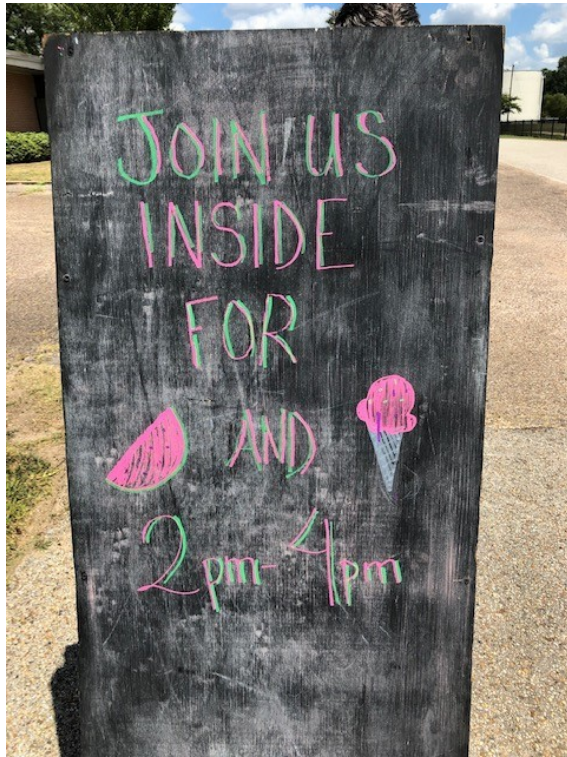 JOIN US
INSIDE
FOR
AND
2pm-4pm